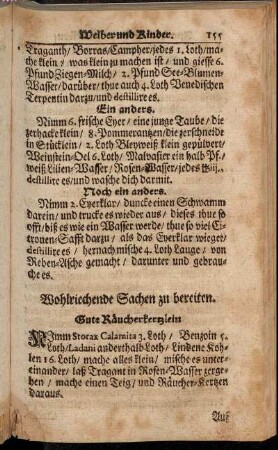 Weiber und Kinder. 155
Traganth / Borras / Campher / jedes 1. Loth / ma-
che klein / was klein zu machen ist / und giesse 6.
Pfund Ziegen-Milch / 2. Pfund See-Blumen-
Wasser / darüber / thue auch 4. Loth Venedischen
Terpentin dartzu / und destillire es.
Ein anders.
Nimm 6. frische Eyer / eine junge Taube / die
zerhacke klein / 8. Pommerantzen / die zerschneide
in Stücklein / 2. Loth Bleyweiß klein gepülvert /
Weinstein-Oel 6. Loth / Malvasier ein halb Pf.
weiß Lilien-Wasser / Rosen-Wasser / jedes
destillire es / und wasche dich darmit.
Noch ein anders.
Nimm 2. Eyerklar / duncke einen Schwamm
darein / und trucke es wieder aus / dieses thue so
offt / biß es wie ein Wasser werde / thue so viel Ci-
tronen-Safft dartzu / als das Eyerklar wieget /
destillire es / hernach mische 4. Loth Lauge / von
Reben-Asche gemacht / darunter und gebrau-
che es.
Wohlriechende Sachen zu bereiten.
Gute Räucherkertzlein
NImm Storax Calamita 3. Loth / Benzoin 5.
Loth / Ladani anderthalb Loth / Lindene Koh-
len 16. Loth / mache alles klein / mische es unter-
einander / laß Tragant in Rosen-Wasser zerge-
hen / mache einen Teig / und Räucher-Kertzen
daraus.
Auf